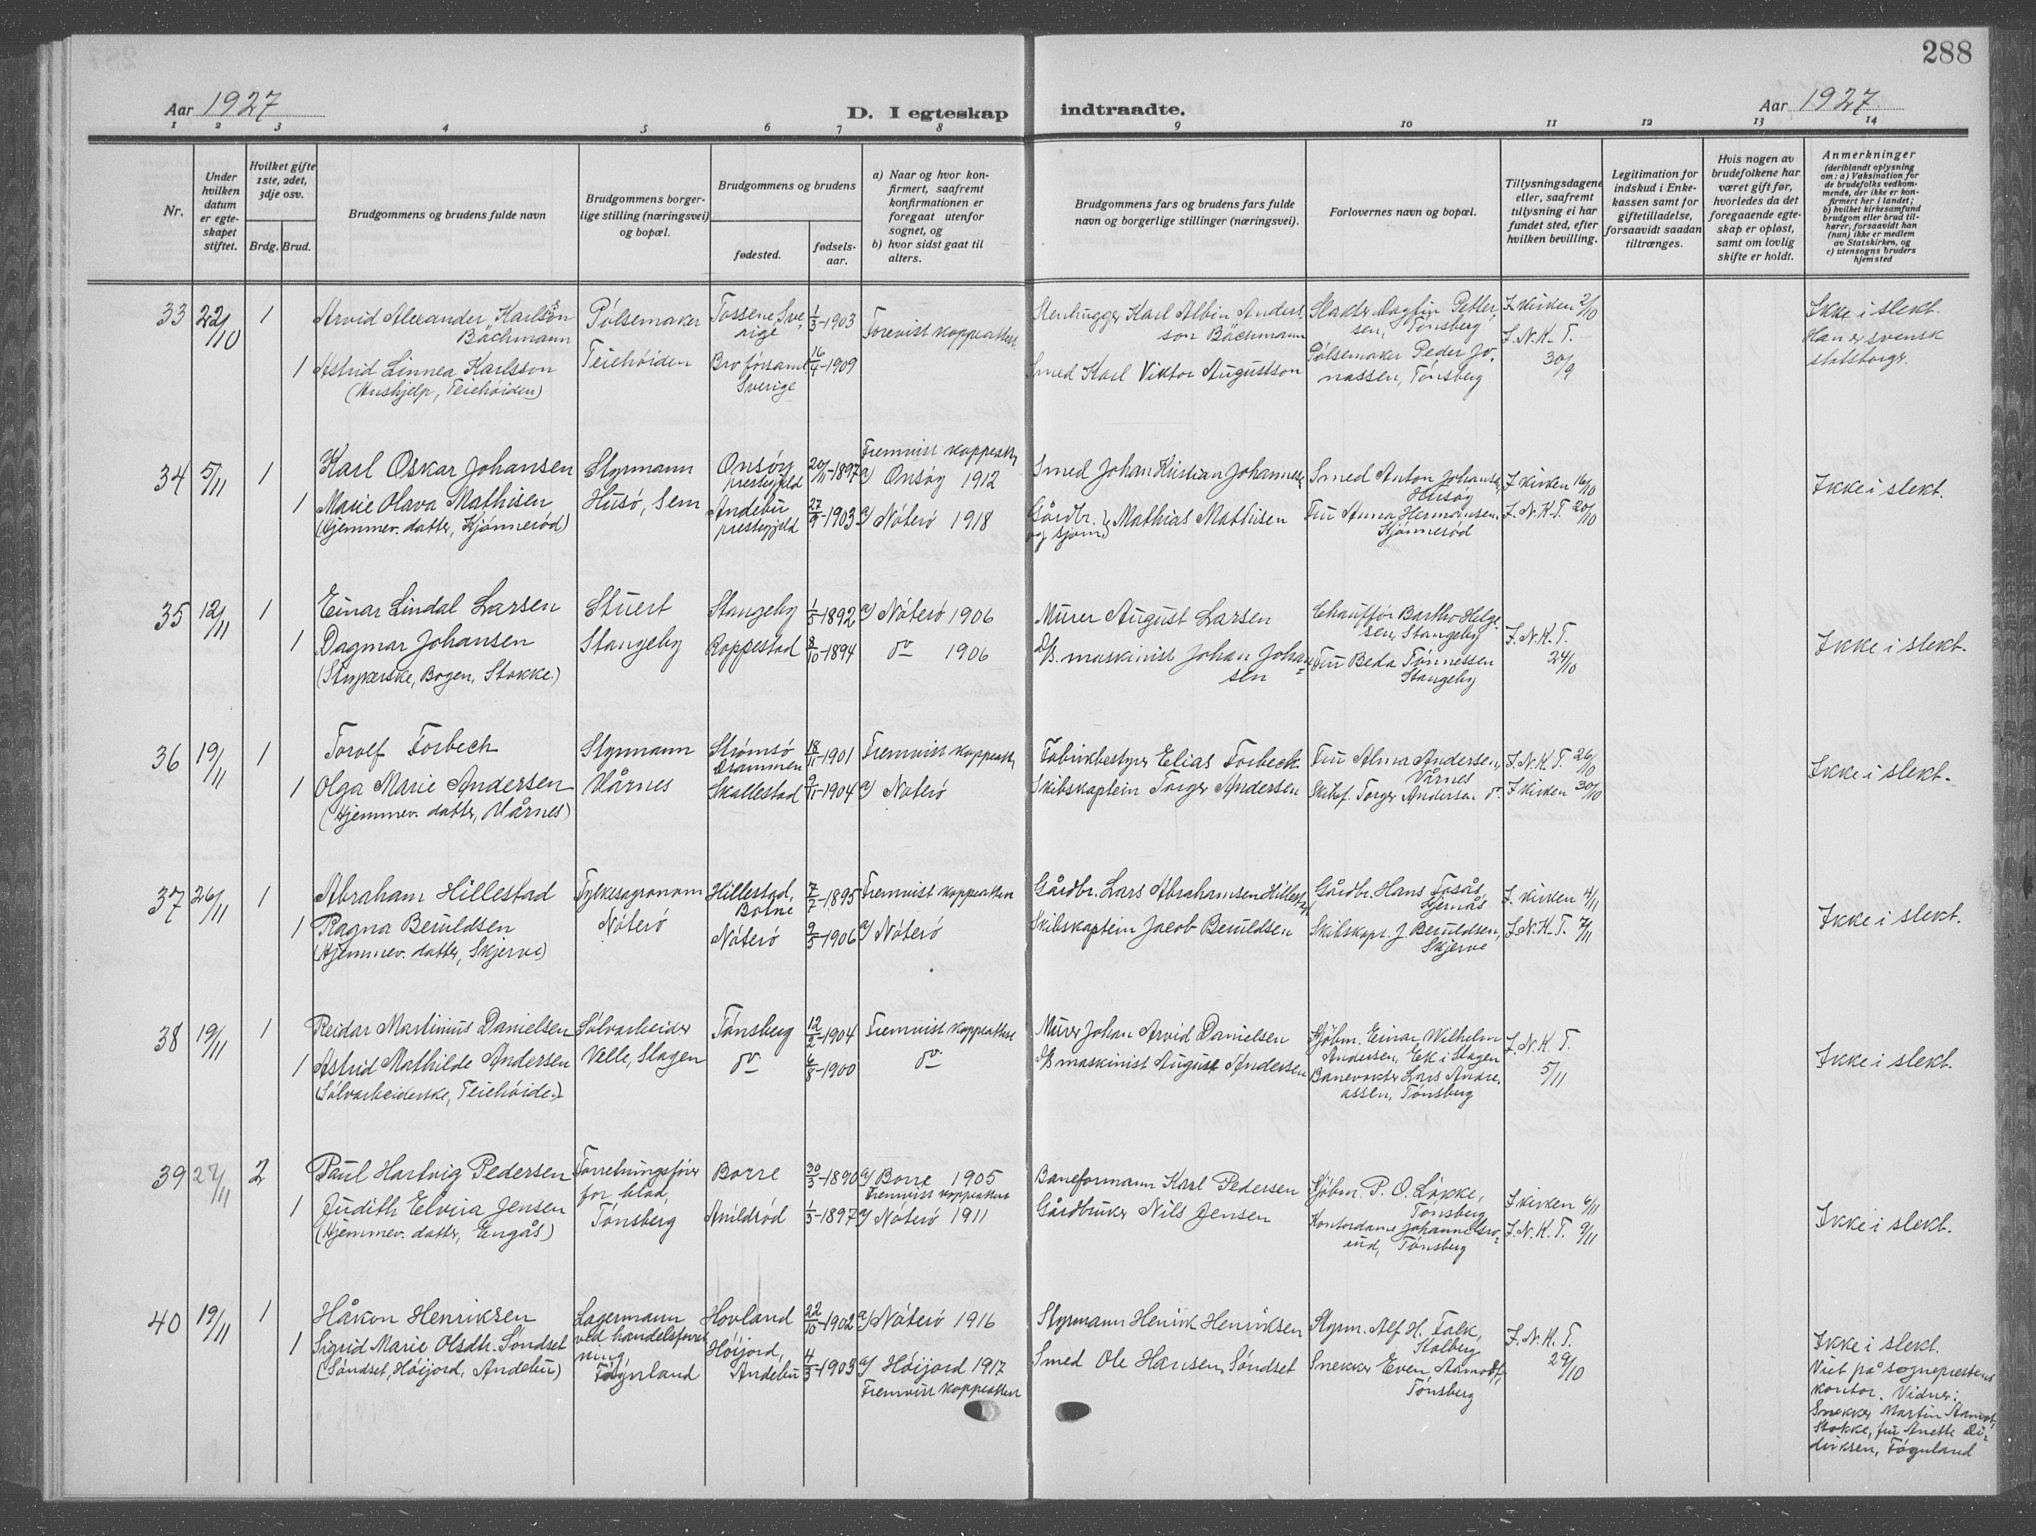 288
Aar 1927
D. I egteskap indtraadte.
Aar 1927
1 2 3 4 5 6 7 8 9 10 11 12 13 14
Nr.
Under hvilken datum er egte-skapet stiftet.
Hvilket gifte 1ste, 2det, 3dje osv.
Brdg. Brud.
Brudgommens og brudens fulde navn
Brudgommens borger-lige stilling (næringsvei) og bopæl.
Brudgommens og brudens
fødested.
fødsels-aar.
a) Naar og hvor kon-firmert, saafremt konfirmationen er foregaat utenfor sognet, og
b) hvor sidst gaat til alters.
Brudgommens fars og brudens fars fulde navn og borgerlige stillinger (næringsvei).
Forlovernes navn og bopæl.
Tillysningsdagene eller, saafremt tillysning ei har fundet sted, efter hvilken bevilling.
Legitimation for indskud i Enke-kassen samt for giftetilladelse, forsaavidt saadan tiltrænges.
Hvis nogen av brudefolkene har været gift før, hvorledes da det foregaaende egte-skap er opløst, samt om lovlig skifte er holdt.
Anmerkninger
(deriblandt oplysning om: a) Vaksination for de brudefolks vedkom-mende, der ikke er kon-firmert her i landet; b) hvilket kirkesamfund brudgom eller brud til-hører, forsaavidt han (hun) ikke er medlem av Statskirken, og c) utensogns bruders hjemsted
33 22/10 1 Arvid Alexander Karlsson Bächmann Pølsemaker Teiehøiden Tossene Sverige 1/3-1903 Forevist koppeattest. Stenhugger Karl Albin Andersson Bächmann Slakter Dagfin Pettersen, Tønsberg I kirken 2/10 I. N. K. T. 30/9 Ikke i slekt. Han er svensk statsborger
1 Astrid Linnea Karlsson (Hushjelp, Teiehøiden) Bro församl. Sverige 16/4-1909 Smed Karl Viktor Augustson Pølsemaker Peder Jonassen, Tønsberg
34 5/11 1 Karl Oskar Johansen Styrmann Husø, Sem Onsøy prestegjeld 20/11-1897 Fremvist koppeatt. a) Onsøy 1912 Smed Johan Kristian Johannese Smed Anton Johanse Husøy I kirken 16/10 Ikke i slekt.
1 Marie Olava Mathisen (Hjemmev. datter, Kjønnerød) Andebu prestegjeld 27/9-1903 a) Nøterø 1918 Gårdbr. og sjøm. Mathias Mathisen Fru Anna Hermansen. Kjønnerød I. N. K. T. 20/10
35 12/11 1 Einar Lindal Larsen Stuert Stangeby Stangeby 1/5-1892 a) Nøterø 1906 Murer August Larsen Chauffør Bartho Helgesen, Stangeby I. N. K. T. 24/10
1 Dagmar Johansen (Strykerske, Bogen, Stokke.) Roppestad 8/10-1894 do 1906 D/S. maskinist Johan Johansen Fru Beda Tønnessen Stangeby Ikke i slekt.
36 19/11 1 Torolf Forbech Styrmann Vårnes Strømsø Drammen 18/11-1901 Fremvist koppeatt. Fabrikbestyrer Elias Forbech Fru Alma Andersen, Vårnes I. N. K. T. 26/10 Ikke i slekt.
1 Olga Marie Andersen (Hjemmev. datter, Vårnes) Skallestad 9/11-1904 a) Nøterø Skibskaptein Torger Andersen Skibsf. Torger Andersen do I kirken 30/10
37 26/11 1 Abraham Hillestad Fylkesagronom Nøterø Hillestad, Botne 7/7-1895 Fremvist koppeatten Gårdbr. Lars Abrahamsen Hillestad Gårdbr. Hans Fosås, Hjernås I. kirken 4/11 Ikke i slekt.
1 Ragna Beruldsen (Hjemmev. datter, Skjerve) Nøterø 9/5-1906 a) Nøterø Skibskaptein Jacob Beruldsen Skibskapt. J. Beruldsen, Skjerve I. N. K. T. 7/11
38 19/11 1 Reidar Martinius Danielsen Sølvarbeider Velle, Slagen Tønsberg 12/2-1904 Fremvist koppeattest Murer Johan Arvid Danielsen Kjøbm. Einar Wilhelm Andersen, Ek i Slagen I. N. K. T. 5/11 Ikke i slekt.
1 Astrid Mathilde Andersen (Sølvarbeiderske, Teiehøide.) do 6/8-1900 do D/S maskinist August Andersen Banevokter Lars Andreassen, Tønsberg
39 27/11 2 Paul Hartvig Pedersen Forretningsfører for blad, Tønsberg Borre 30/3-1890 a) Borre 1905 Fremvist koppeattest Baneformann Karl Pedersen Kjøbm. P. O. Løkke, Tønsberg I kirken 6/11 Ikke i slekt.
1 Judith Elvira Jensen (Hjemmev. datter, Engås) Arildrød 1/3-1897 a) Nøterø 1911 Gårdbruker Nils Jensen Kontordame Tønsberg I. N. K. T. 9/11
40 19/11 1 Håkon Henriksen Lagermann ved handelsforretning Føynland Hovland 22/10-1902 a) Nøterø 1916 Styrmann Henrik Henriksen Styrm. Alf H. Falk, Stalberg I. N. K. T. 29/10
1 Sigrid Marie Olsdtr. Søndset (Søndset, Høijord, Andebu) Høijord, Andebu 4/3-1903 a) Høijord 1917 Fremvist koppeatten Smed Ole Hansen Søndset Snekker Even Aamodt, Tønsberg
Ikke i slekt. Viet på sogneprestens kontor. Vidner: Snekker Martin Aamot, Stokke, fru Anette Didriksen, Føynland